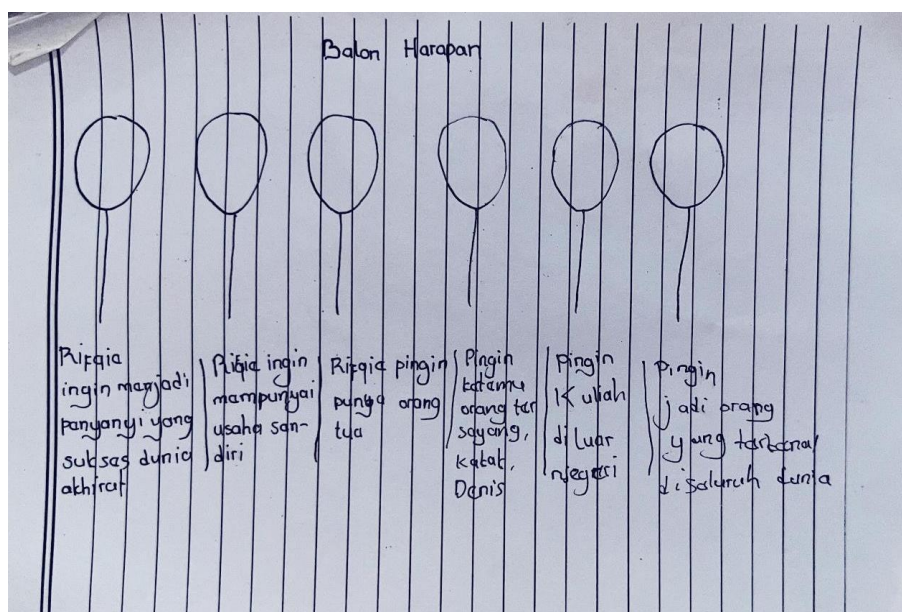 Balon Harapan
Rifqia
ingin manjadi
panyanyi yang
suksas dunia
akhirat
Rifqia ingin
mampunyai
usaha san-
diri
Rifqia pingin
punya orang
tua
Pingin
katamu
orang tar
sayang,
Kakak,
Danis
pingin
Kuliah
diluar
njegari
pingin
jadi orang
yang tarkanal
disaluruh dunia